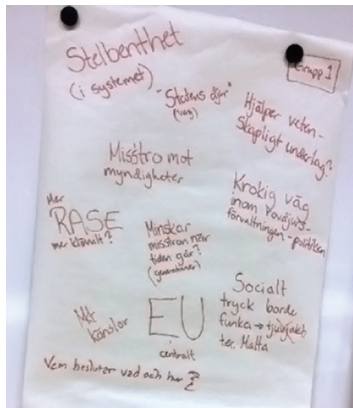 Stelbenthet
(i systemet)
Grupp 1
"Statens djur"
(varg)
Hjälper veten-
skapligt underlag?
Misstro mot
myndigheter
Krokig väg
inom rovdjurs-
förvaltningen - politiken
Mer
RASE
mer klövvilt?
Minskar
misstron när
tiden går?
(generationer)
Socialt
tryck borde
funka → tjuvjakt
tex. Malta
Mkt
känslor
EU
centralt
Vem beslutar vad och hur?